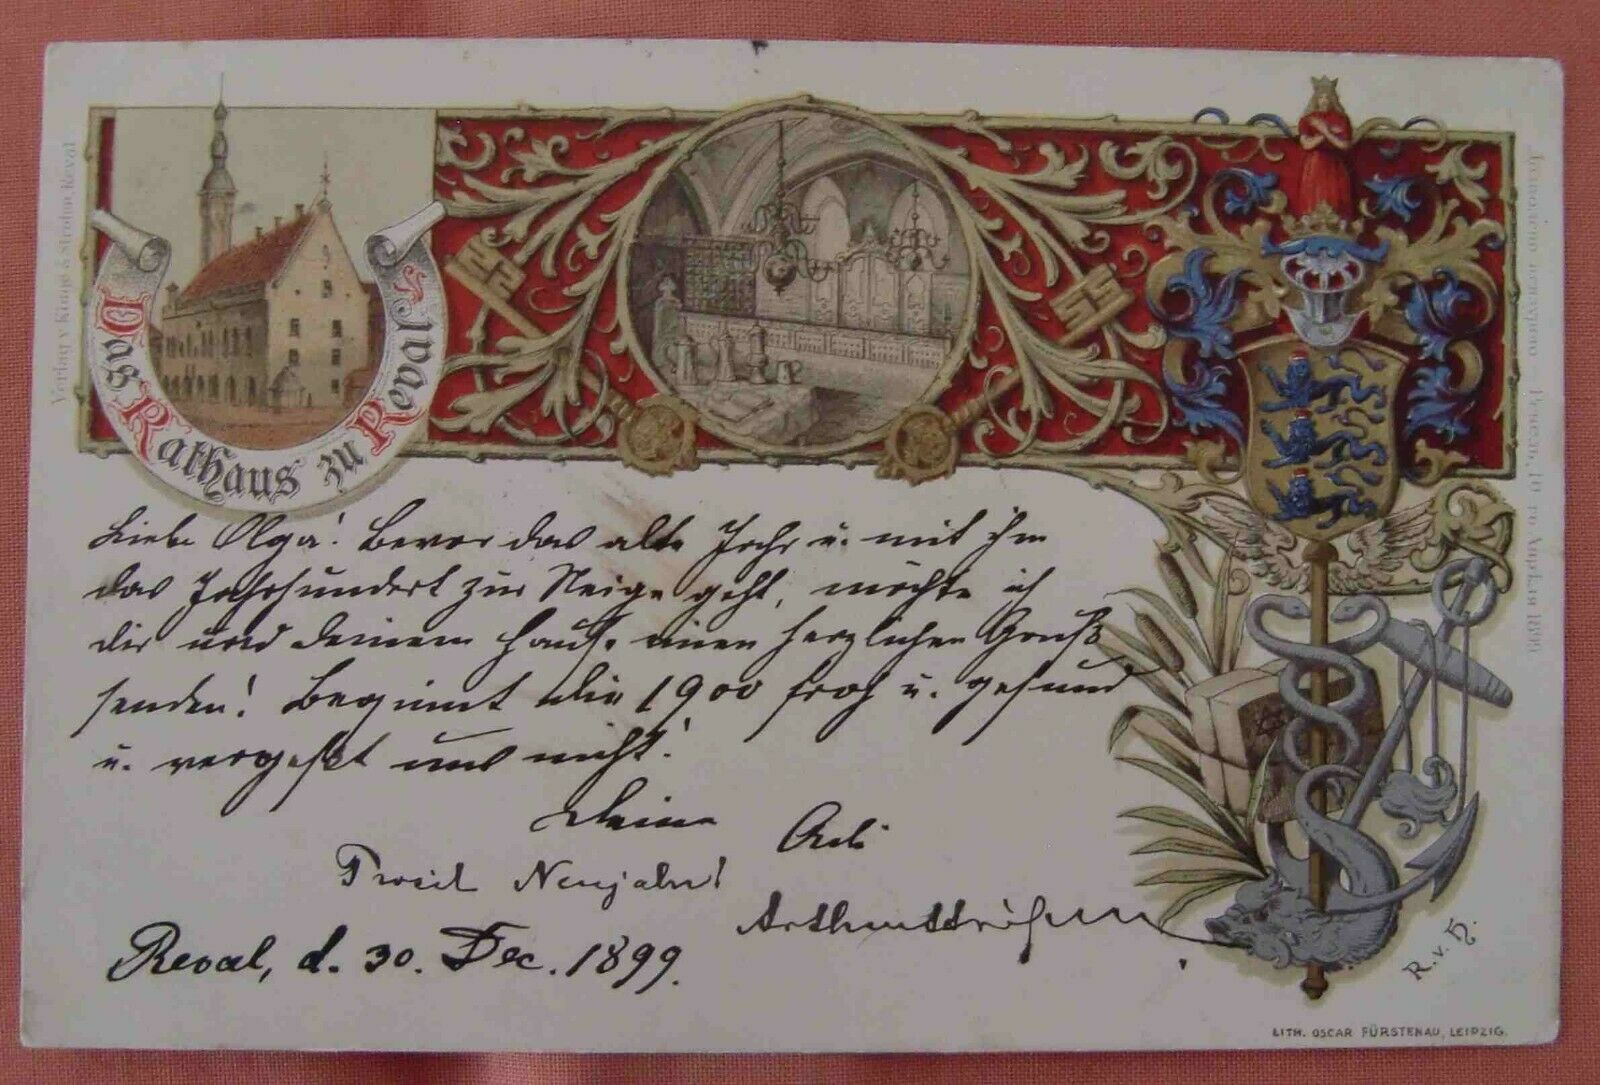 Verlag v Kluge & Ströhm Reval
Das Rathaus zu Reval
Дозволено цензурою — Ревель, 10 го Апрѣля 1899
Liebe Olga! Bevor das alte Jahr u. mit ihm
das Jahrhundert zur Neige geht, möchte ich
dir und deinem Hause einen herzlichen Gruß
senden! Beginnt die 1900 froh u. gesund
u. vergeßt uns nicht!
Deine
Prosit Neujahr!
Reval, d. 30. Dec. 1899.
R. v. H.
LITH. OSCAR FÜRSTENAU, LEIPZIG.